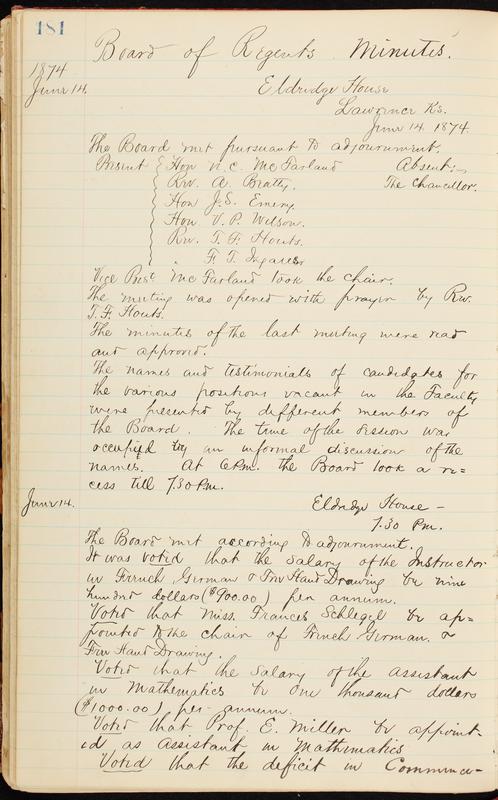 181
Board of Regents Minutes.
1874
June 14.
Eldridge House
Lawrence Ks.
June 14. 1874.
The Board met pursuant to adjournment.
Present { Hon N. C. McFarland Absent:
Rev. A. Beatty. The Chancellor.
Hon J. S. Emery
Hon. V. P. Wilson.
Rev. T. F. Houts.
" F. T. Ingalls.
Vice Prest McFarland took the chair.
The meeting was opened with prayer by Rev.
T. F. Houts.
The minutes of the last meeting were read
and approved.
The names and testimonials of candidates for
the various positions vacant in the Faculty
were presented by different members of
the Board. The time of the session was
occupied by an informal discussion of the
names. At 6 P.M. the Board took a re=
cess till 7.30 P.M.
June 14.
Eldridge House —
7.30 P.M.
The Board met according to adjournment.
It was voted that the salary of the Instructor
in French German & Free Hand Drawing be nine
hundred dollars ($900.00) per annum.
Voted that Miss. Frances Schlegel be ap=
pointed to the chair of French German. &
Free Hand Drawing.
Voted that the salary of the assistant
in Mathematics be one thousand dollars
($1000.00) per annum.
Voted that Prof. E. Miller be appoint-
ed as assistant in Mathematics
Voted that the deficit in Commence-